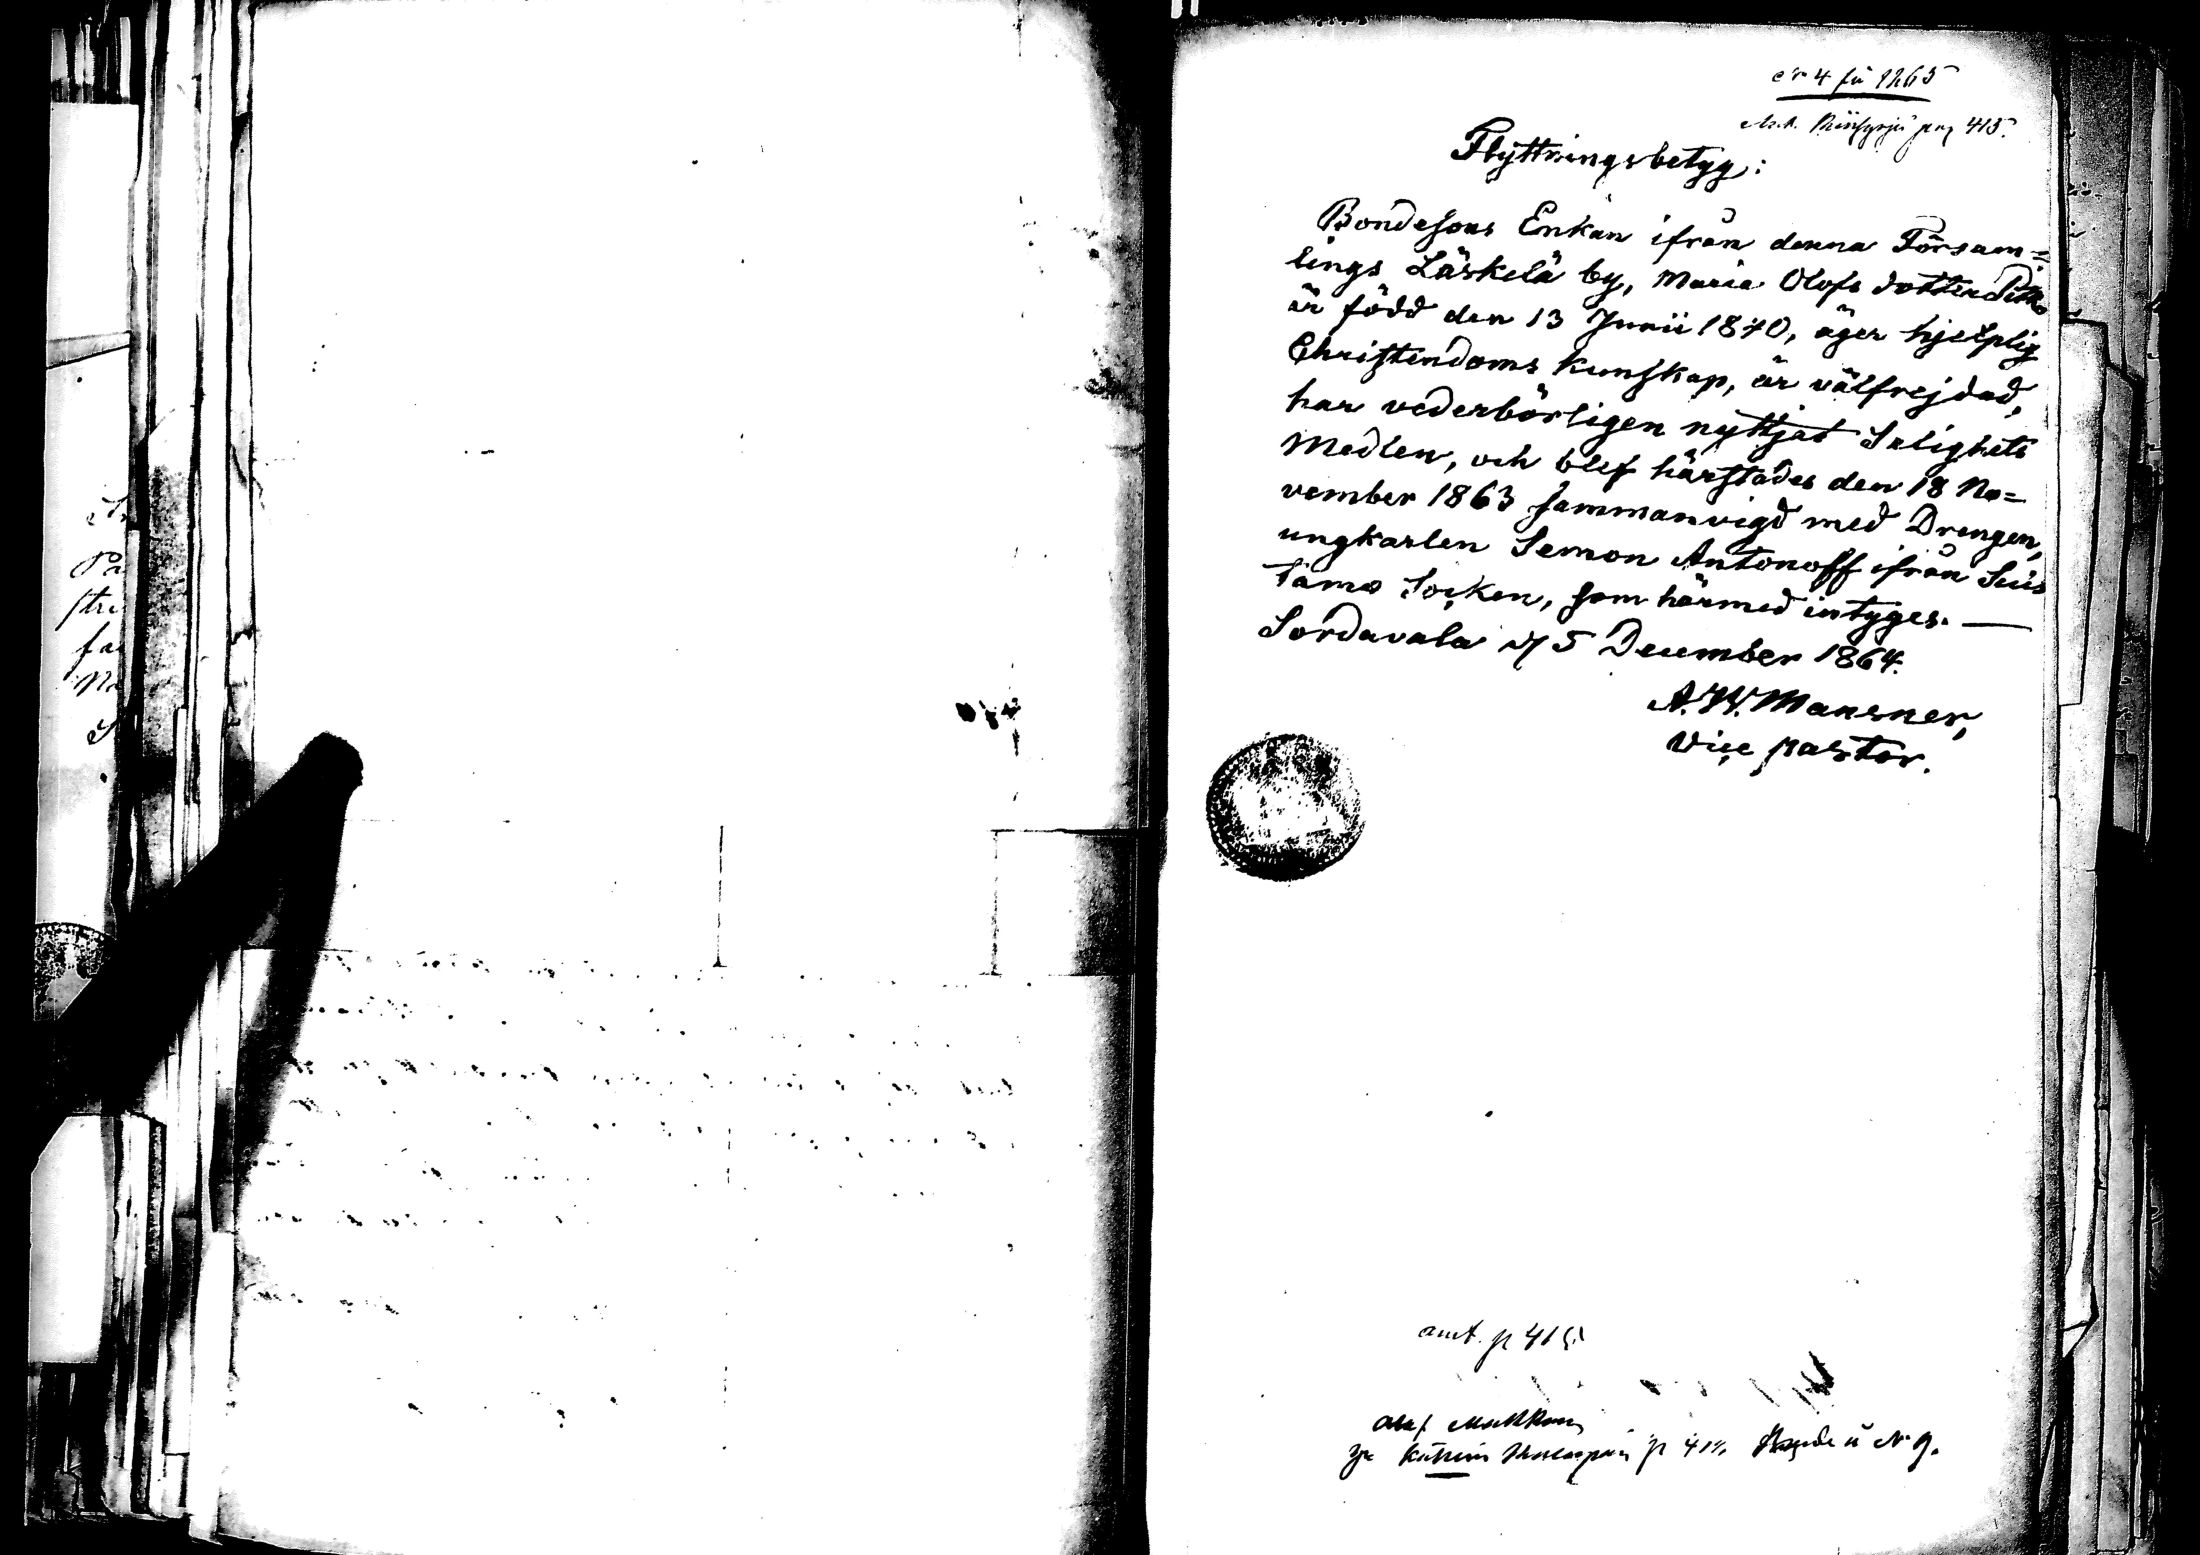 N:o 4 för 1865
pag 415.
Flyttningsbetyg:
Bondesons Enkan ifrån denna Försam=
lings Läskelä by, Maria Olofs dotter
är född den 13 Junii 1840, äger hjelplig
Christendoms kunskap, är välfrejdad,
har vederbörligen nyttjat Salighets
Medlen, och blef härstädes den 18 No=
vember 1863 sammanvigd med Drengen,
ungkarlen Semon Antonoff ifrån Suis
tamo Socken, som härmed intyges. —
Sordavala d/ 5 December 1864.
A. W. Mansner,
Vice pastor.
ant. p 415